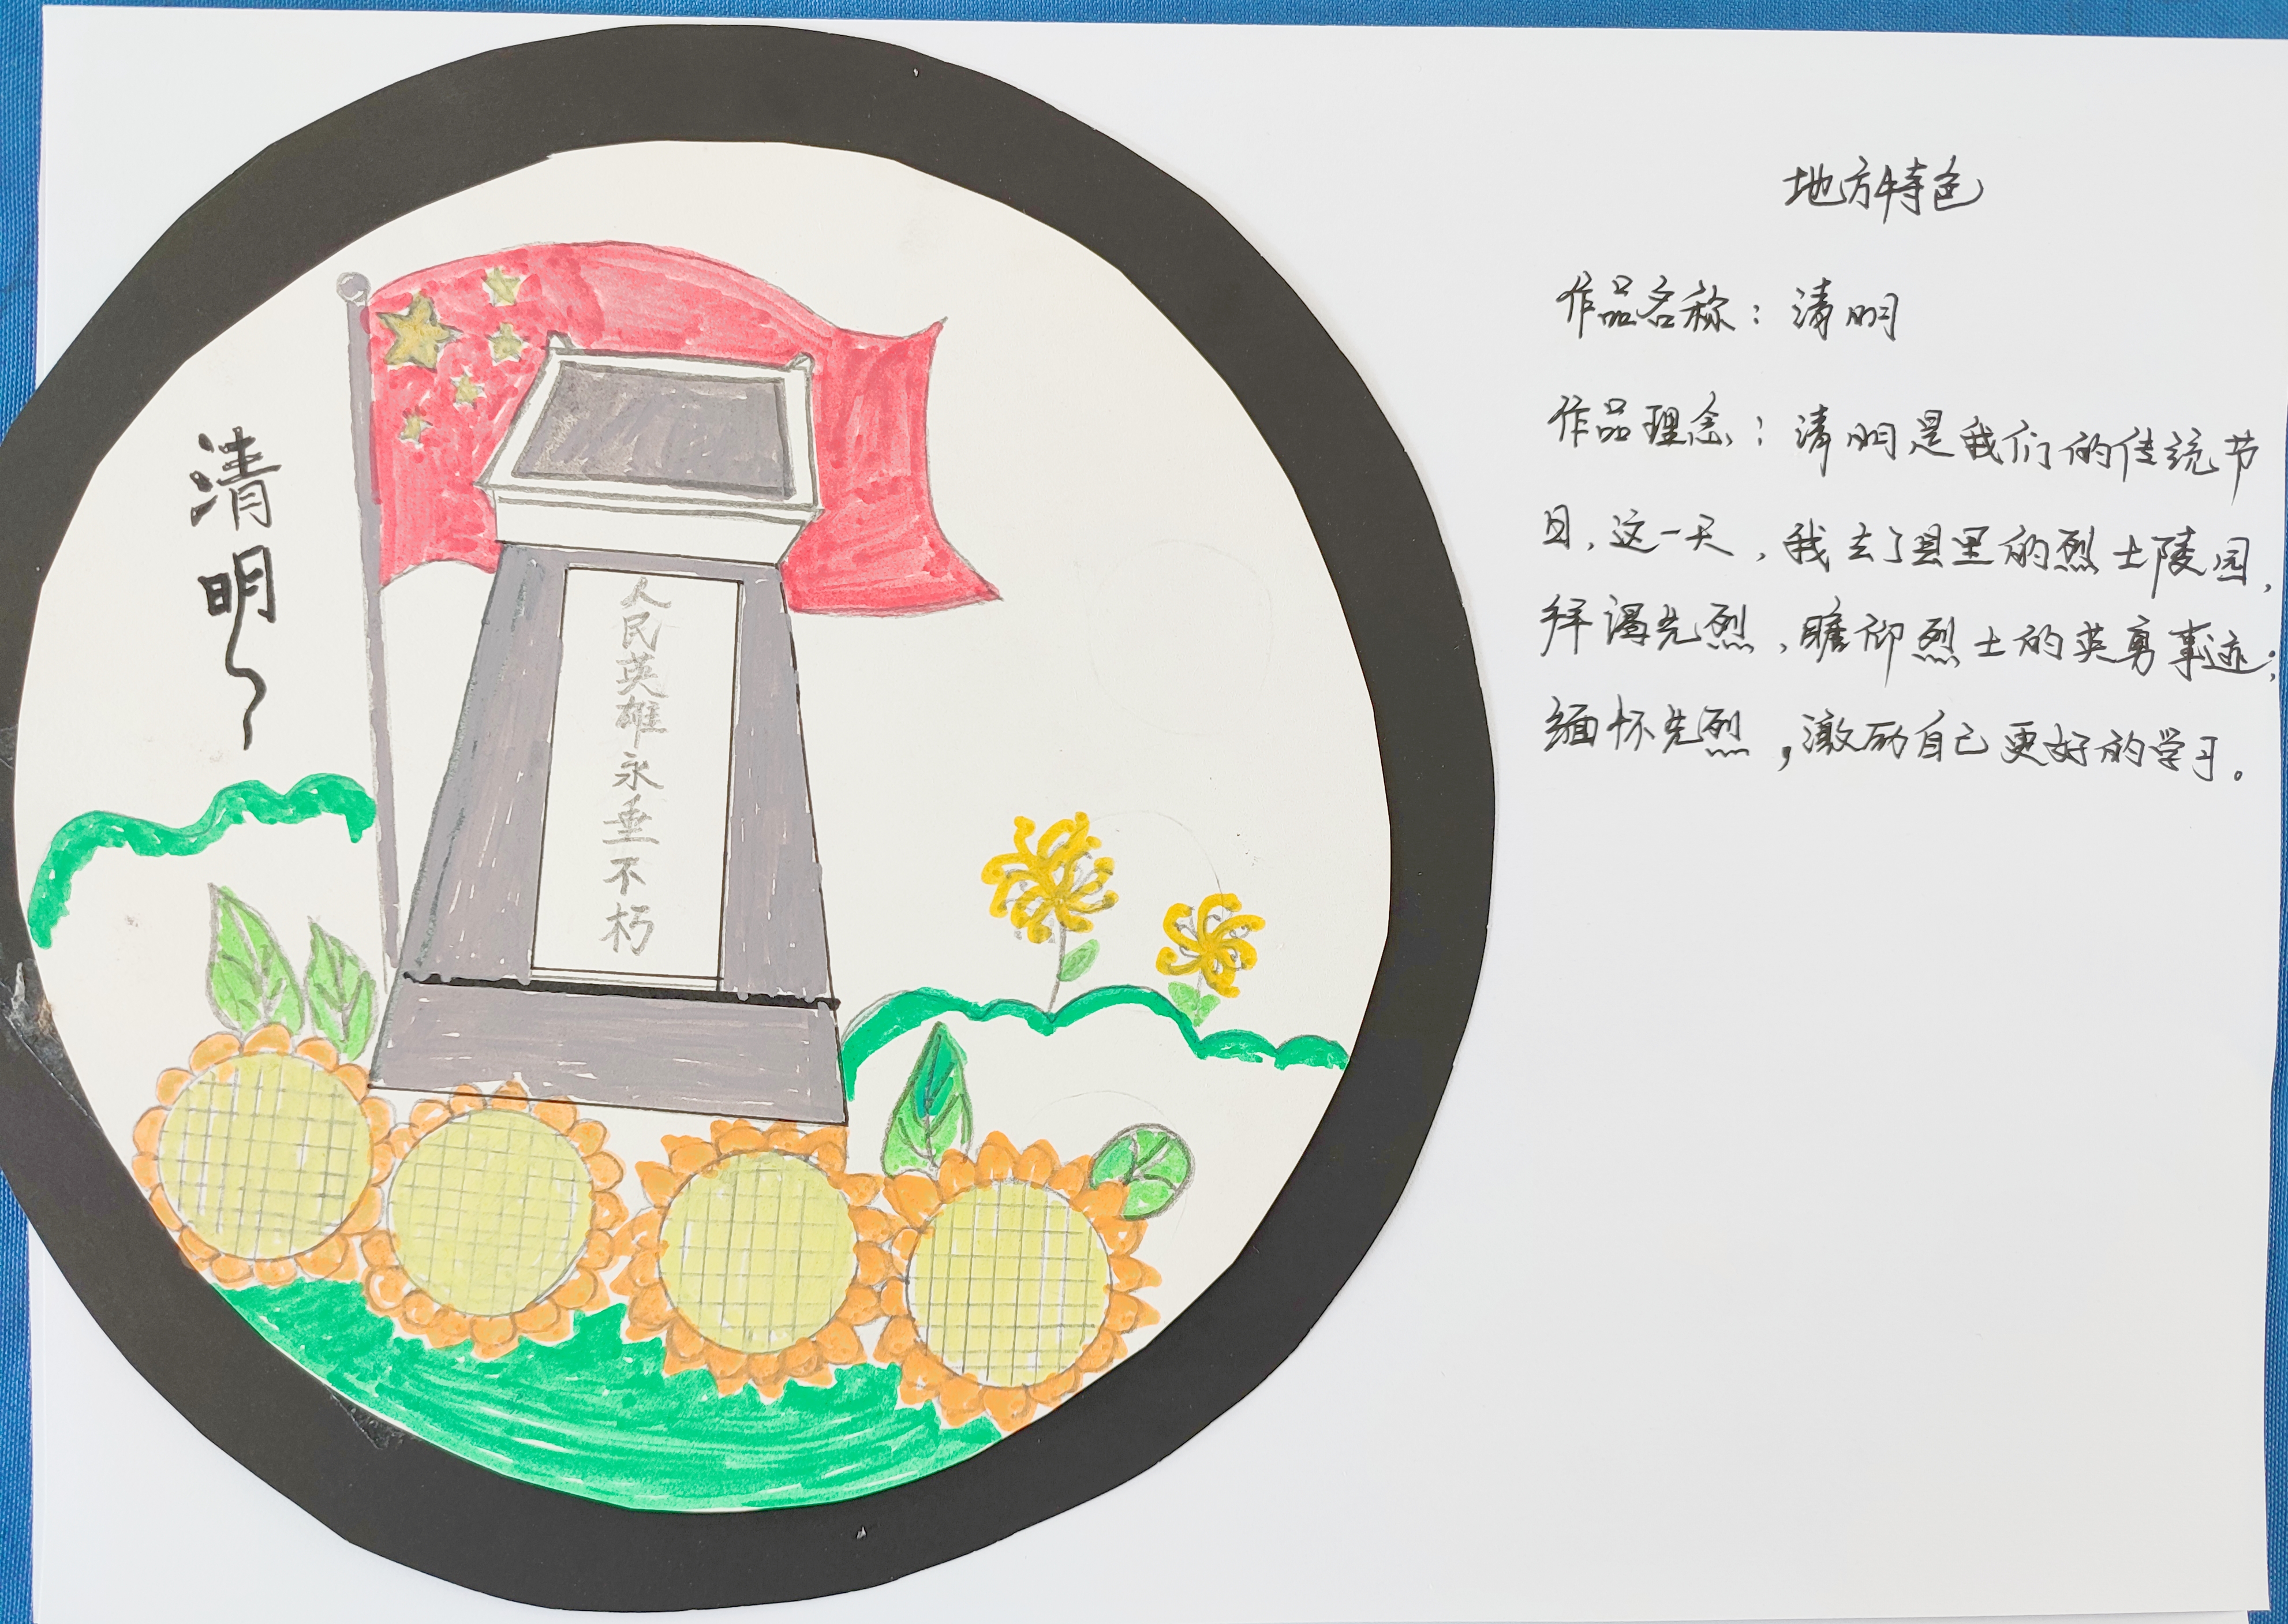 清明
人民英雄永垂不朽
地方特色
作品名称：清明
作品理念：清明是我们的传统节
日，这一天，我去了县里的烈士陵园，
拜谒先烈，瞻仰烈士的英勇事迹；
缅怀先烈，激励自己更好的学习。